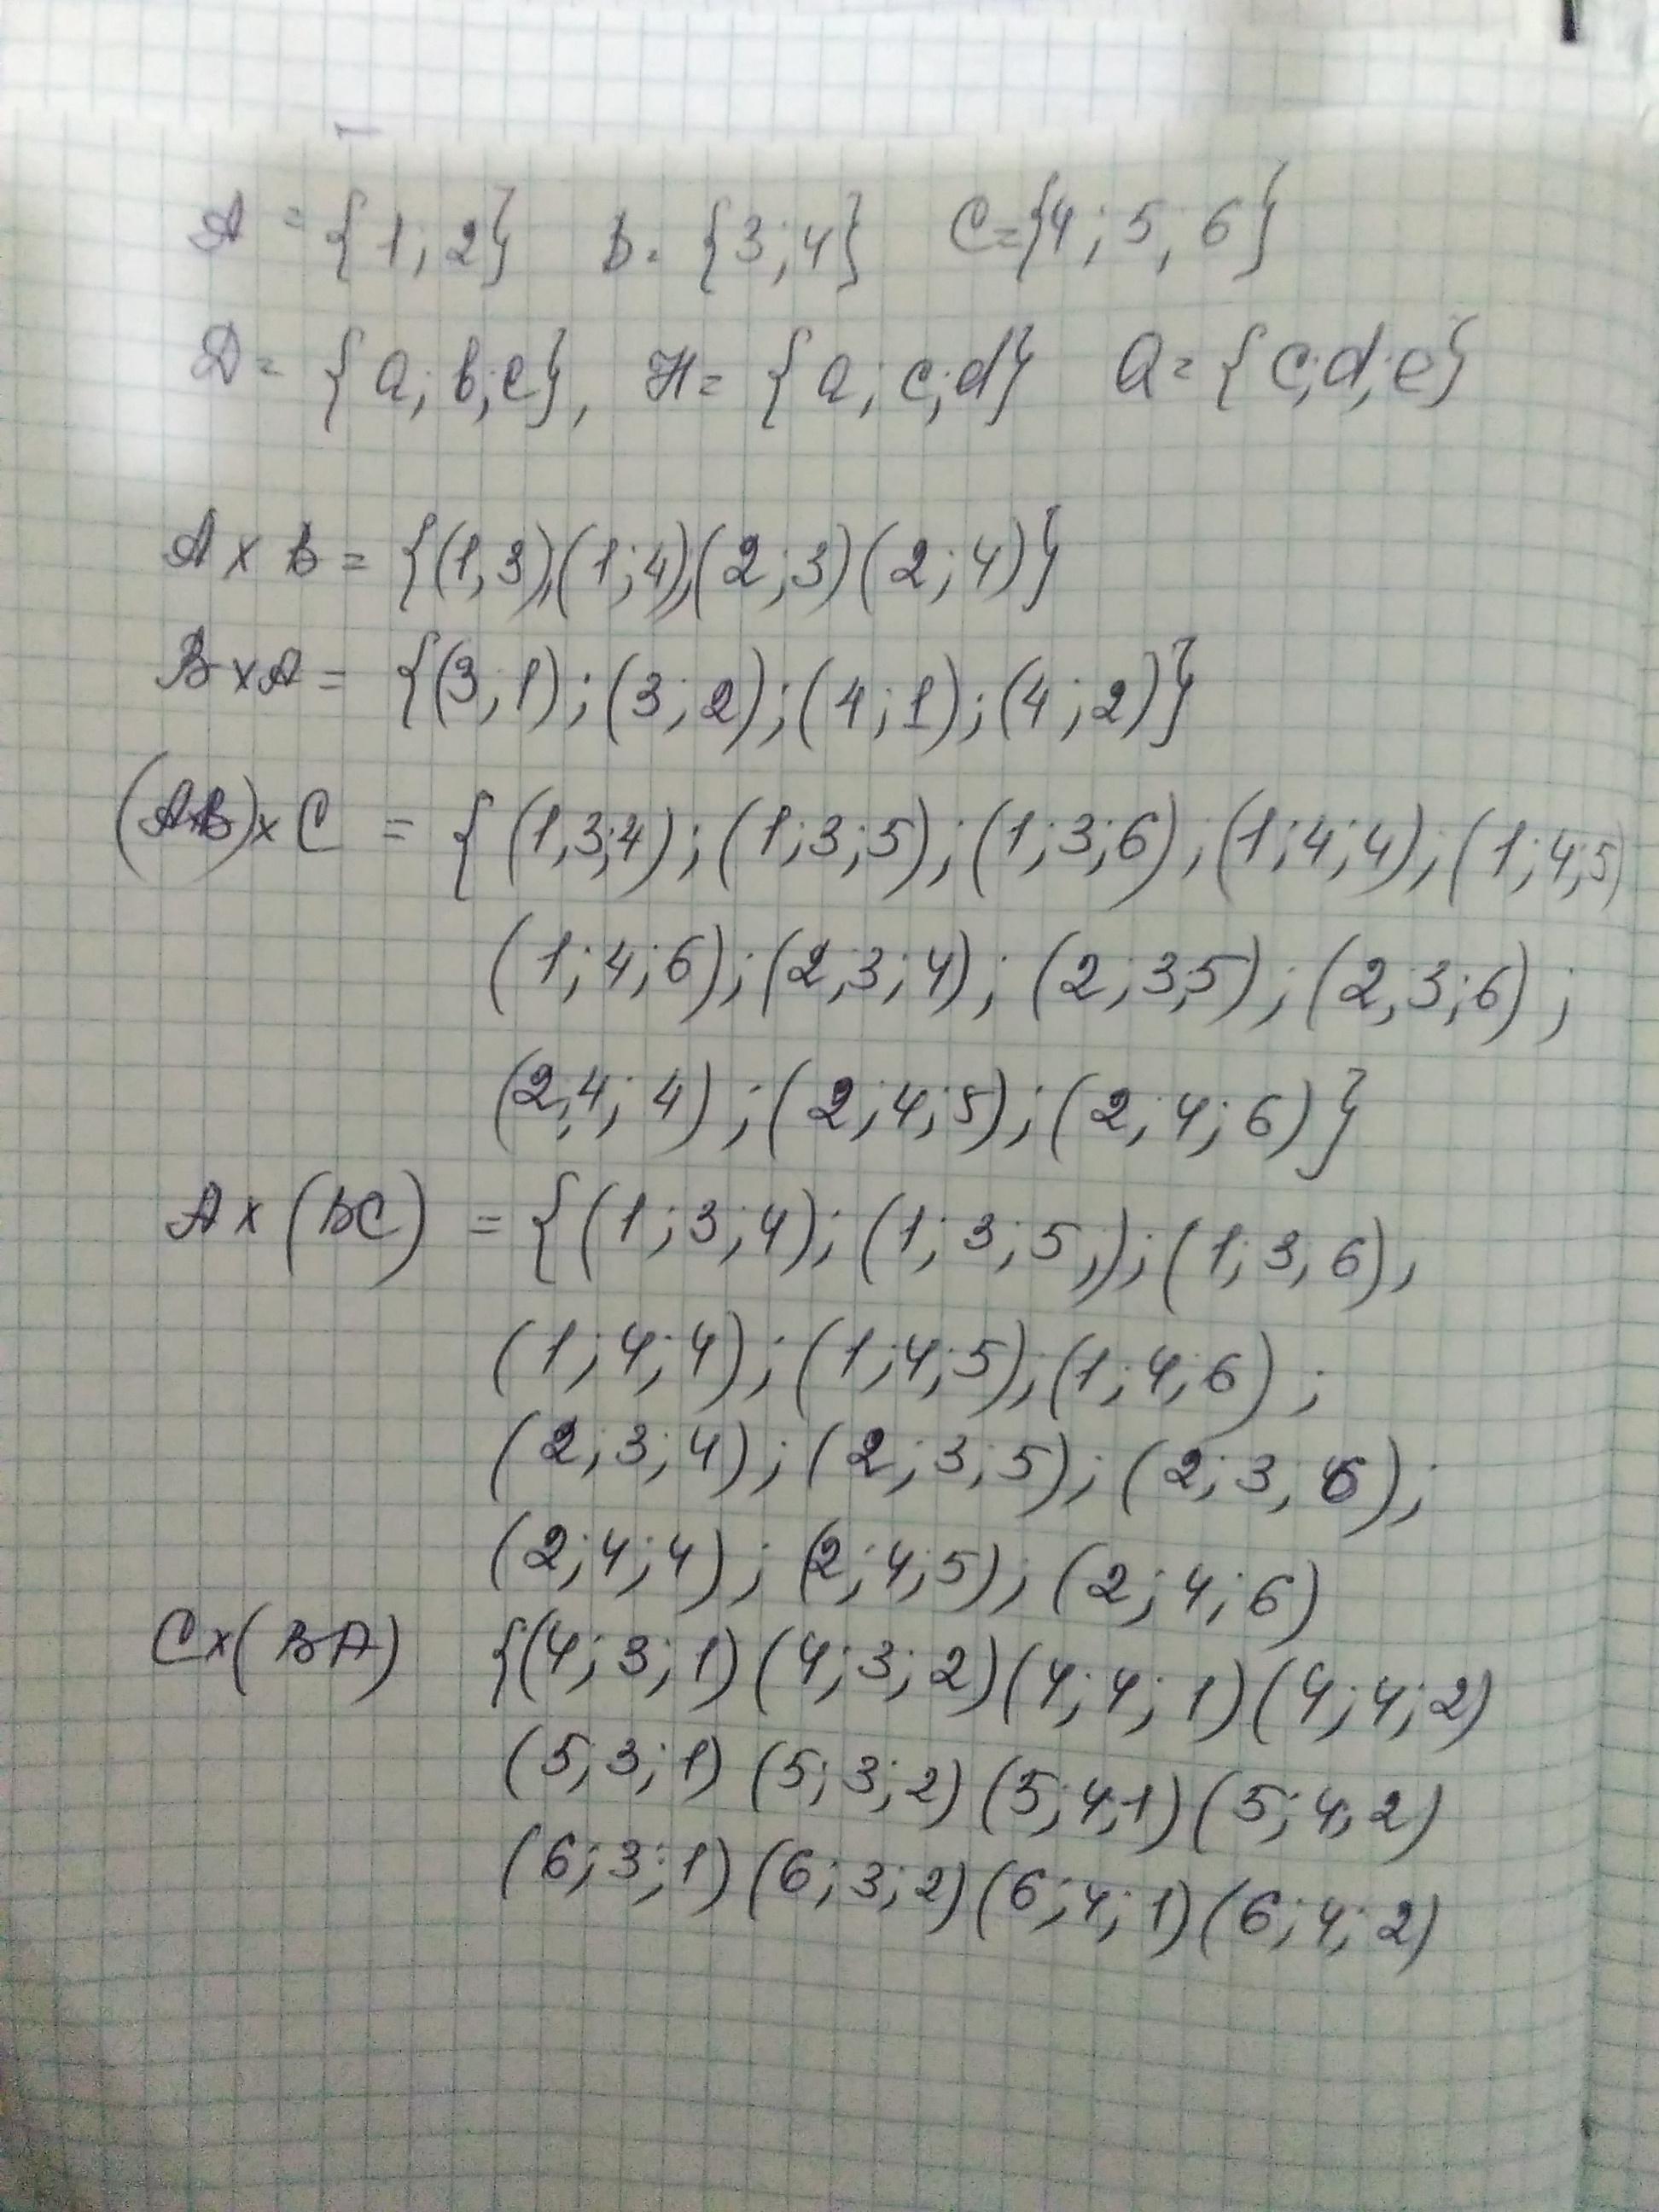 A = {1; 2} B = {3; 4} C = {4; 5, 6}
D = {a; b; e}, H = {a; c; d} Q = {c; d; e}
A x B = {(1, 3), (1; 4), (2; 3) (2; 4)}
B x A = {(3; 1); (3; 2); (4; 1); (4; 2)}
(AB) x C = {(1, 3; 4); (1; 3; 5); (1; 3; 6); (1; 4; 4); (1; 4; 5)
(1; 4; 6); (2; 3; 4); (2; 3 5); (2, 3; 6);
(2; 4; 4); (2; 4; 5); (2; 4; 6)}
A x (BC) = {(1; 3; 4); (1; 3; 5;); (1; 3, 6),
(1; 4; 4); (1; 4; 5); (1; 4; 6);
(2; 3; 4); (2; 3; 5); (2; 3, 6);
(2; 4; 4); (2; 4; 5); (2; 4; 6)
C x (BA) {(4; 3; 1) (4; 3; 2) (4; 4; 1) (4; 4; 2)
(5; 3; 1) (5; 3; 2) (5; 4; 1) (5; 4; 2)
(6; 3; 1) (6; 3; 2) (6; 4; 1) (6; 4; 2)